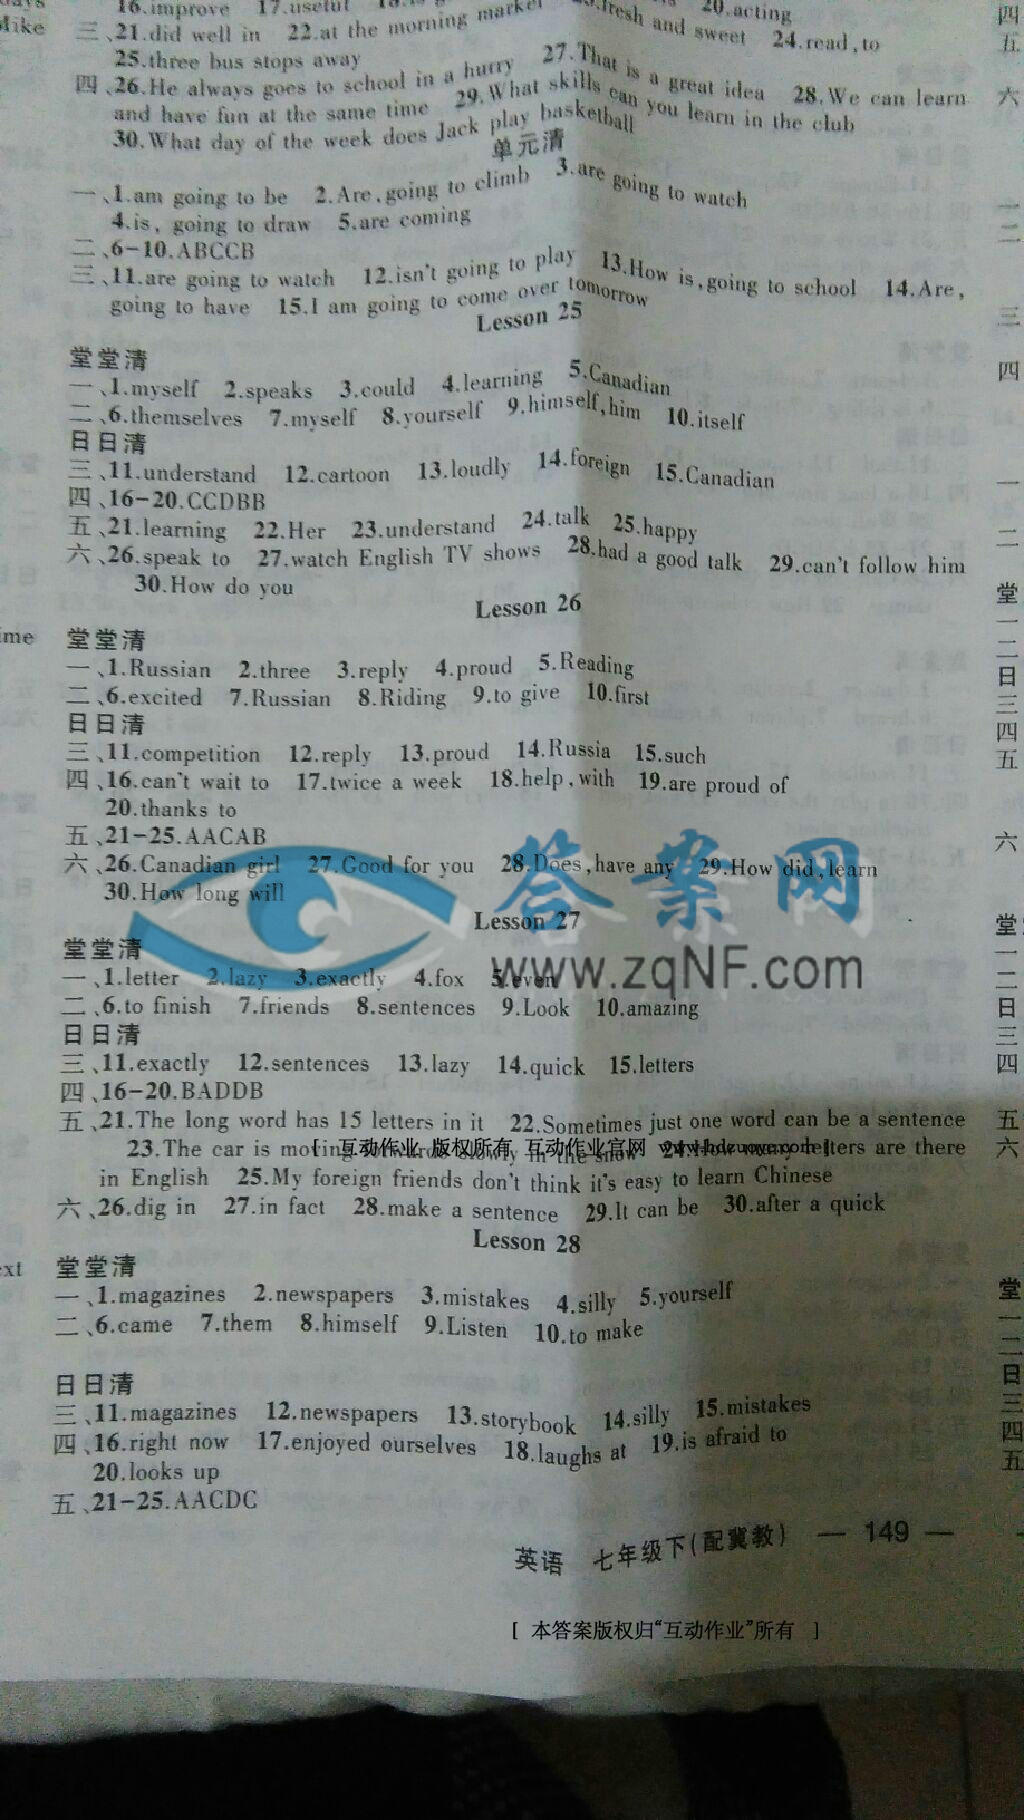 Mike
16.improve 17.useful 20.acting
三、21.did well in 22.at the morning market fresh and sweet 24.read,to
25.three bus stops away
四、26.He always goes to school in a hurry 27.That is a great idea 28.We can learn
and have fun at the same time 29.What skills can you learn in the club
30.What day of the week does Jack play basketball
单元清
一、1.am going to be 2.Are,going to climb 3.are going to watch
4.is, going to draw 5.are coming
二、6-10.ABCCB
三、11.are going to watch 12.isn't going to play 13.How is,going to school 14.Are,
going to have 15.I am going to come over tomorrow
Lesson 25
堂堂清
一、1.myself 2.speaks 3.could 4.learning 5.Canadian
二、6.themselves 7.myself 8.yourself 9.himself,him 10.itself
日日清
三、11.understand 12.cartoon 13.loudly 14.foreign 15.Canadian
四、16-20.CCDBB
五、21.learning 22.Her 23.understand 24.talk 25.happy
六、26.speak to 27.watch English TV shows 28.had a good talk 29.can't follow him
30.How do you
Lesson 26
堂堂清
一、1.Russian 2.three 3.reply 4.proud 5.Reading
二、6.excited 7.Russian 8.Riding 9.to give 10.first
日日清
三、11.competition 12.reply 13.proud 14.Russia 15.such
四、16.can't wait to 17.twice a week 18.help,with 19.are proud of
20.thanks to
五、21-25.AACAB
六、26.Canadian girl 27.Good for you 28.Does,have any 29.How did,learn
30.How long will
答案网
Lesson 27
www.zqNF.com
堂堂清
一、1.letter 2.lazy 3.exactly 4.fox 5.even
二、6.to finish 7.friends 8.sentences 9.Look 10.amazing
日日清
三、11.exactly 12.sentences 13.lazy 14.quick 15.letters
四、16-20.BADDB
五、21.The long word has 15 letters in it 22.Sometimes just one word can be a sentence
23.The car is moving slowly in the snow 24.How many letters are there
[ 互动作业 版权所有 互动作业官网 www.hdzuoye.com ]
in English 25.My foreign friends don't think it's easy to learn Chinese
六、26.dig in 27.in fact 28.make a sentence 29.It can be 30.after a quick
Lesson 28
堂堂清
一、1.magazines 2.newspapers 3.mistakes 4.silly 5.yourself
二、6.came 7.them 8.himself 9.Listen 10.to make
日日清
三、11.magazines 12.newspapers 13.storybook 14.silly 15.mistakes
四、16.right now 17.enjoyed ourselves 18.laughs at 19.is afraid to
20.looks up
五、21-25.AACDC
英语 七年级下(配冀教) — 149 —
[ 本答案版权归“互动作业”所有 ]